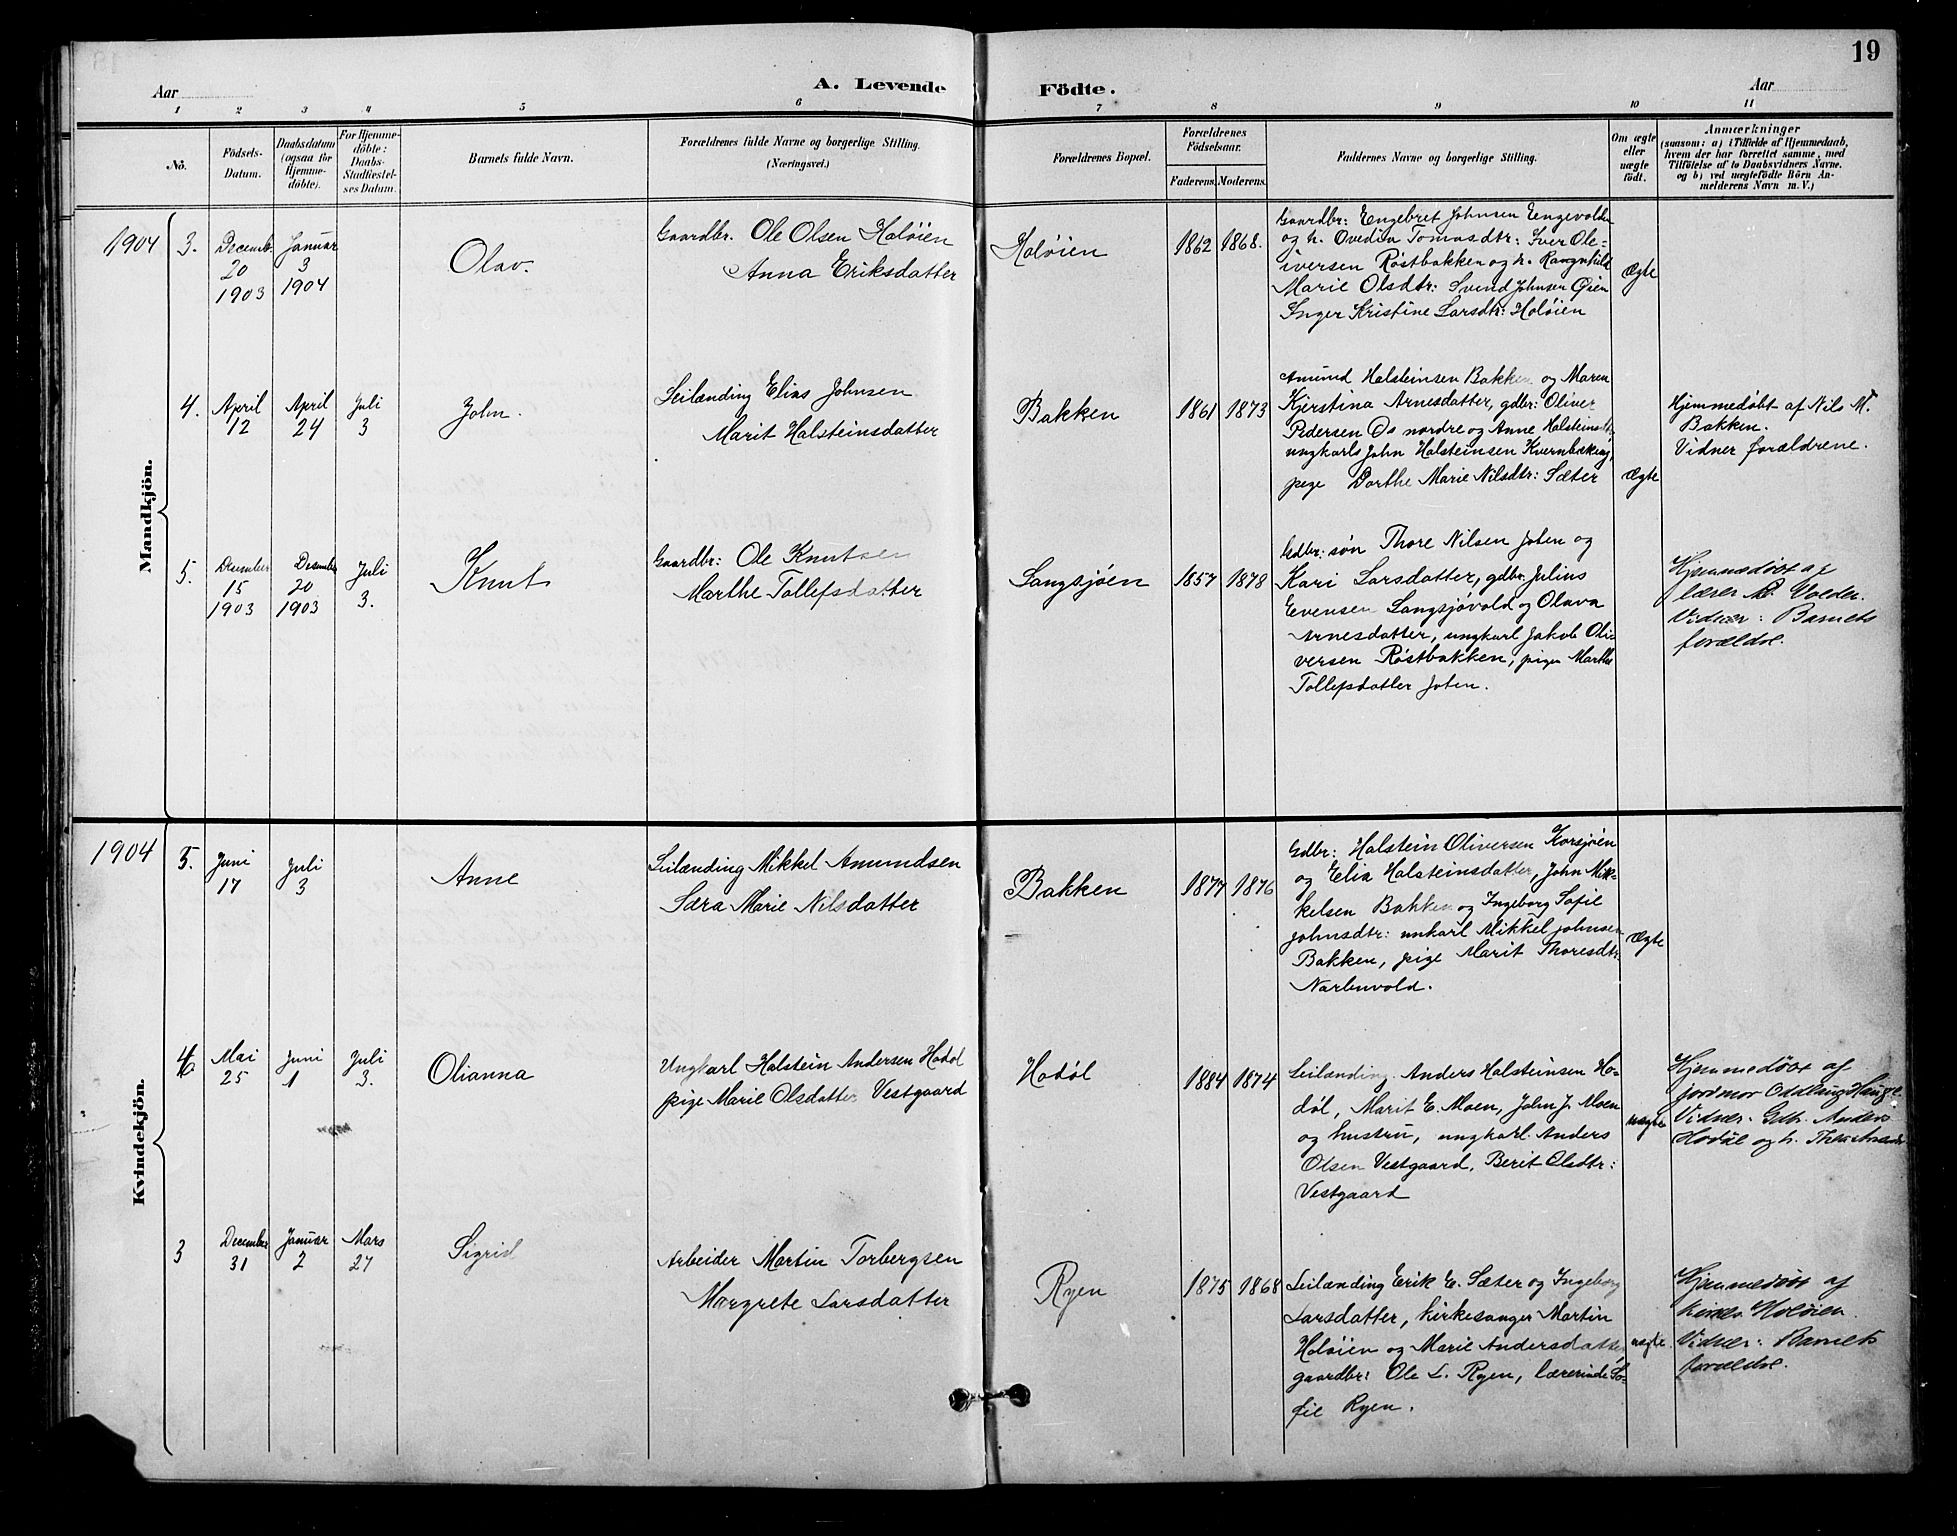 19
A. Levende Födte.
Aar
Aar
1 2 3 4 5 6 7 8 9 10 11
Nô.
Födsels-
Datum.
Daabsdatum
(ogsaa for
Hjemme-
döbte).
For Hjemme-
döbte:
Daabs-
Stadfæstel-
ses Datum.
Barnets fulde Navn.
Forældrenes fulde Navne og borgerlige Stilling.
(Næringsvei.)
Forældrenes Bopæl.
Forældrenes
Födselsaar.
Faderens. Moderens.
Faddernes Navne og borgerlige Stilling.
Om ægte
eller
uægte
födt.
Anmærkninger
(saasom: a) i Tilfælde af Hjemmedaab,
hvem der har forrettet samme, med
Tilföielse af to Daabsvidners Navne.
og b) ved uægtefödte Börn An-
melderens Navn m. V.)
Mandkjön.
1904
3.
Decemb.
20
1903
Januar
3
1904
Olav.
Gaardbr. Ole Olsen Holøien
Anna Eriksdatter
Holøien
1862
1868.
Gaardbr: Engebret Johnsen Engevolden
og h. Ovedia Tomasdtr: Iver Ole-
iversen Røstbakken og h. Rangnhild
Marie Olsdtr: Svend Johnsen Øien
Inger Kristine Larsdtr: Holøien
ægte
4.
April
12
April
24
Juli
3
John.
Leilænding Elias Johnsen
Marit Halsteinsdatter
Bakken
1861
1873
Amund Halsteinsen Bakken og Maren
Kjerstina Arnesdatter, gdbr: Oliver
Pedersen Os nordre og Anne Halsteinsdt,
ungkarls John Halsteinsen Kvernbækeng,
pige Dorthe Marie Nilsdtr: Sæter
ægte
Hjemmedøbt af Nils M.
Bakken.
Vidner forældrene.
5.
Desember
15
1903
Desember
20
1903
Juli
3.
Knut
Gaardbr: Ole Knutsen
Marthe Tollefsdatter
Langsjøen
1857
1878
Gdbr: søn Thore Nilsen Joten og
Kari Larsdatter, gdbr. Julius
Evensen Langsjøvold og Olava
Arnesdatter, ungkarl Jakob Oli-
versen Røstbakken, pige Marthe
Tollefsdatter Joten.
Hjemmedøbt af
lærer P. Volden.
Vidner: Barnets
forældre.
Kvindekjön.
1904
5.
Juni
17
Juli
3
Anne
Leilænding Mikkel Amundsen
Sara Marie Nilsdatter
Bakken
1877
1876
Gdbr: Halstein Oliversen Korsjøen
og Elia Halsteinsdatter, John Mik-
kelsen Bakken og Ingeborg Sofie
Johnsdtr: unkarl Mikkel Johnsen
Bakken, pige Marit Thoresdtr
Narbuvold.
ægte
4
Mai
25
Juni
1
Juli
3.
Olianna
Ungkarl Halstein Andersen Hodøl
pige Marie Olsdatter Vestgaard
Hodøl
1884
1874
Leilænding. Anders Halsteinsen Ho-
døl, Marit E. Moen, John J. Moen
og hustru, ungkarl Anders
Olsen Vestgaard, Berit Olsdtr:
Vestgaard
uægte
Hjemmedøbt af
jordmor Oddlaug Hauge.
Vidner: Gdbr. Anders
Hodøl og h.
3
December
31
Januar
2
Mars
27
Sigrid
Arbeider Martin Torbergsen
Margrete Larsdatter
Ryen
1875
1868
Leilænding Erik E. Sæter og Ingeborg
Larsdatter, kirkesanger Martin
Holøien og Marie Andersdatter
gaardbr: Ole L. Ryen, lærerinde So-
fie Ryen.
uægte.
Hjemmedøbt af
Holøien.
Vidner: Barnets
forældre.